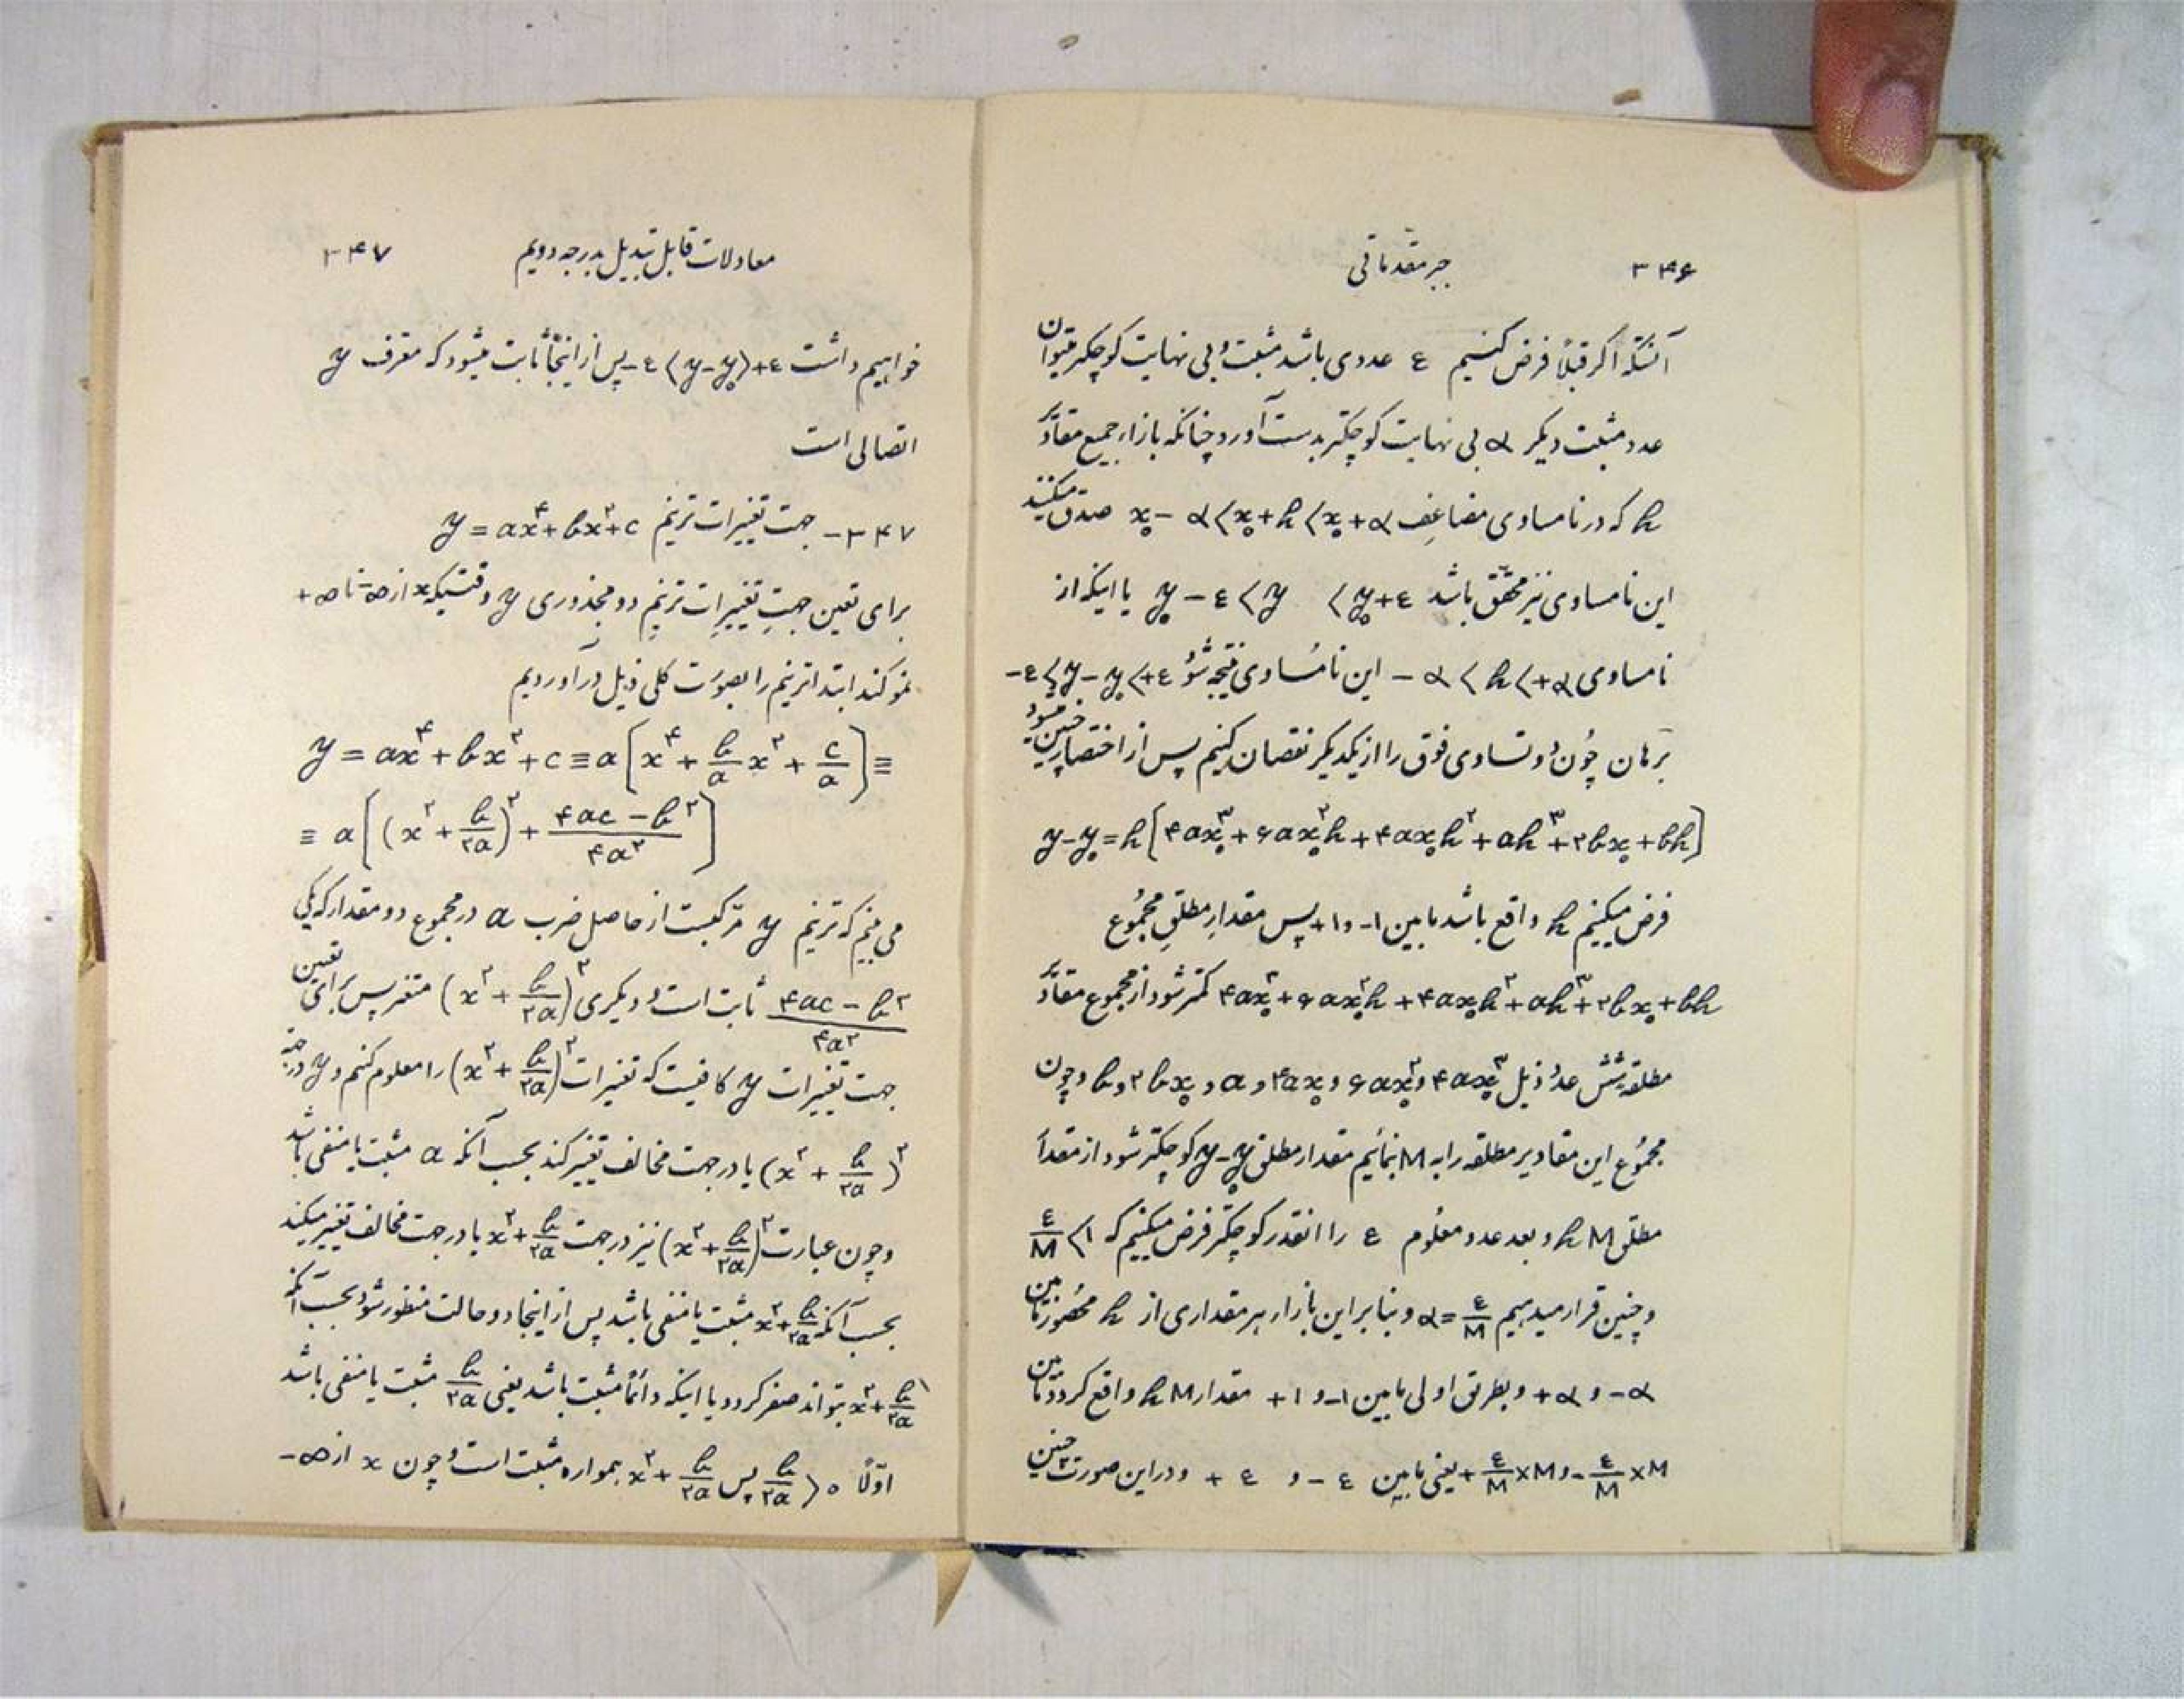 ۳۴۶ جبر مقدماتی
آنستکه اگر قبلاً فرض کنیم ε عددی باشد مثبت و بی نهایت کوچکتر میتوان
عدد مثبت دیگر α بی نهایت کوچکتر بدست آورد چنانکه بازاء جمیع مقادیر
h که در نامساوی مضاعف x₀ − α < x₀ + h < x₀ + α صدق میکنند
این نامساوی نیز محقق باشد y₀ − ε < y < y₀ + ε یا اینکه از
نامساوی −α < h < +α این نامساوی نتیجه شود −ε < y − y₀ < +ε
برهان چون دو تساوی فوق را از یکدیگر نقصان کنیم پس از اختصار چنین میشود
y − y₀ = h[۴ax₀³ + ۶ax₀²h + ۴ax₀h² + ah³ + ۲bx₀ + bh]
فرض میکنیم h واقع باشد مابین ۱− و ۱+ پس مقدار مطلق مجموع
۴ax₀³ + ۶ax₀²h + ۴ax₀h² + ah³ + ۲bx₀ + bh کمتر شود از مجموع مقادیر
مطلقه شش عدد ذیل ۴ax₀³ و ۶ax₀² و ۴ax₀ و a و ۲bx₀ و b و چون
مجموع این مقادیر مطلقه را به M بنمائیم مقدار مطلق y − y₀ کوچکتر شود از مقدار
مطلق hM و بعد عدد معلوم ε را انقدر کوچکتر فرض میکنیم که ε/M < ۱
و چنین قرار میدهیم α = ε/M و بنابراین بازاء هر مقداری از h محصور مابین
−α و +α و بطریق اولی مابین ۱− و ۱+ مقدار hM واقع گردد مابین
−ε/M × M و +ε/M × M یعنی مابین −ε و +ε و در این صورت چنین
معادلات قابل تبدیل بدرجه دویم ۳۴۷
خواهیم داشت −ε < y − y₀ < +ε پس از اینجا ثابت میشود که معرف y
اتصالی است
۳۴۷− جهت تغییرات ترینم y = ax⁴ + bx² + c
برای تعین جهت تغییرات ترینم دو مجذوری y وقتیکه x از −∞ تا +∞
نمو کند ابتدا ترینم را بصورت کلی ذیل در آوردیم
y = ax⁴ + bx² + c ≡ a[x⁴ + b/a x² + c/a] ≡
≡ a[(x² + b/۲a)² + (۴ac − b²)/۴a²]
می بینم که ترینم y مرکبست از حاصل ضرب a در مجموع دو مقدار که یکی
(۴ac − b²)/۴a² ثابت است و دیگری (x² + b/۲a)² متغیر پس برای تعین
جهت تغییرات y کافیست که تغییرات (x² + b/۲a)² را معلوم کنم و y در جهة
(x² + b/۲a)² یا در جهت مخالف تغییر کند بحسب آنکه a مثبت یا منفی باشد
و چون عبارت (x² + b/۲a)² نیز در جهت x² + b/۲a یا در جهت مخالف تغییر میکند
بحسب آنکه x² + b/۲a مثبت یا منفی باشد پس از اینجا دو حالت منظور شود بحسب آنکه
x² + b/۲a بتواند صفر گردد یا اینکه دائماً مثبت باشد یعنی b/۲a مثبت یا منفی باشد
اولاً b/۲a > ۰ پس x² + b/۲a همواره مثبت است و چون x از −∞